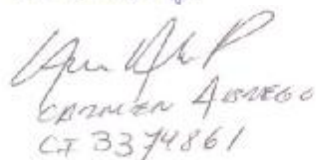 CARMEN ABREGO
CI 3374861